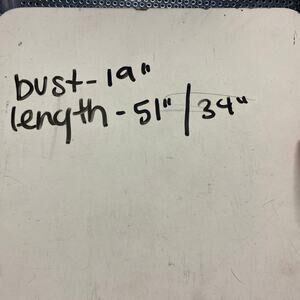 bust-19"
length-51"/34"